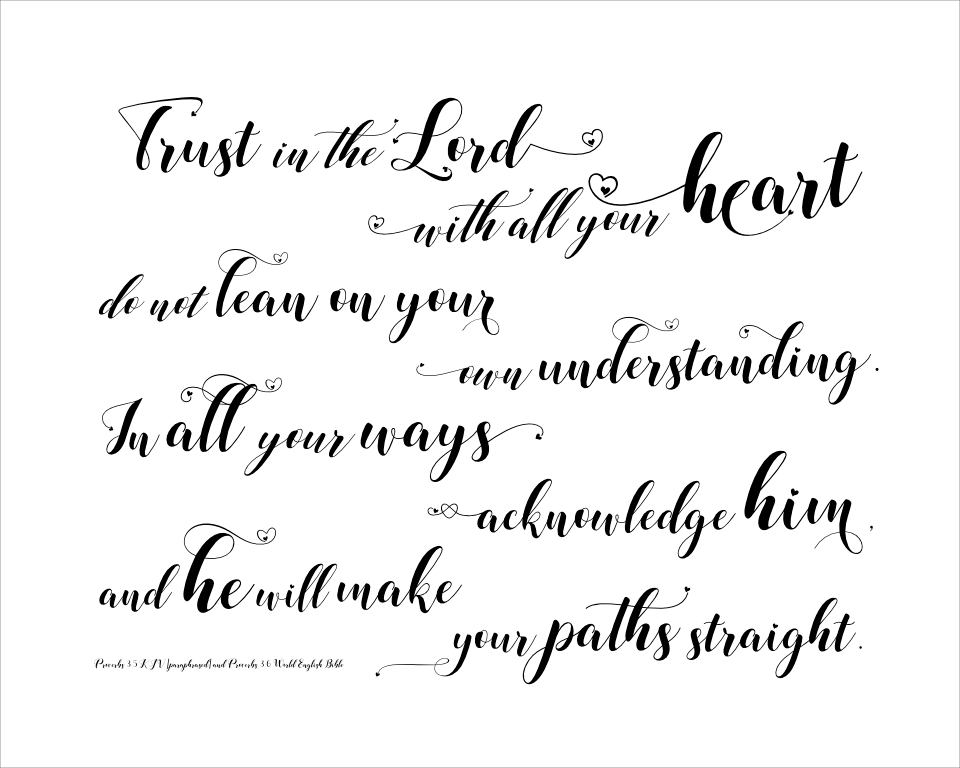 Trust in the Lord
with all your heart
do not lean on your
own understanding.
In all your ways
acknowledge him,
and he will make
your paths straight.
Proverbs 3:5 KJV (paraphrased) and Proverbs 3:6 World English Bible